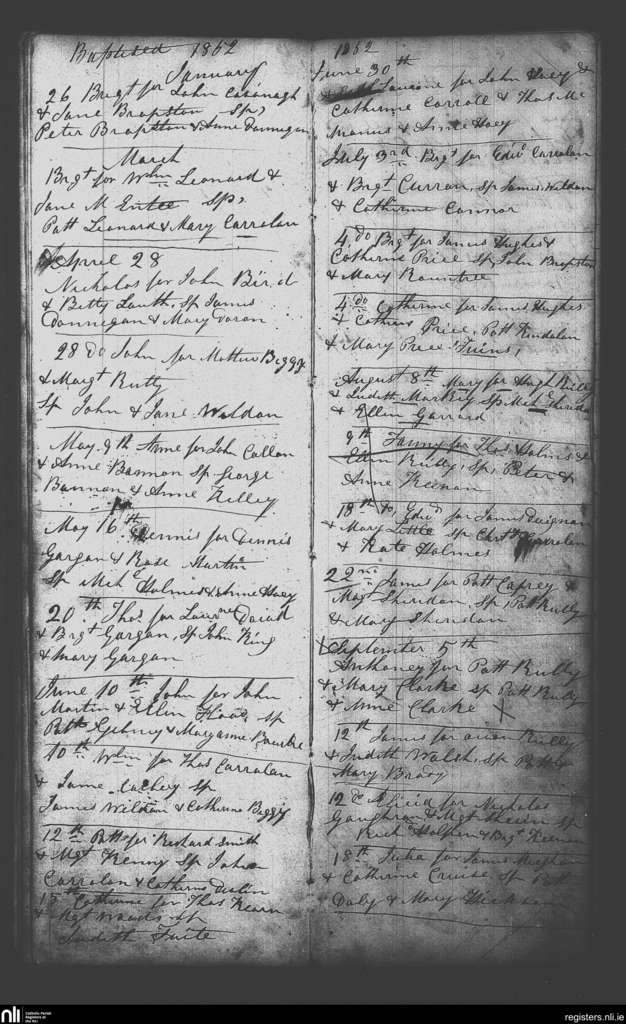 Baptised 1862
January
26 Brgt for John Cavanagh
& Jane Brapston Sps
Peter Brapston & Anne Dunnegan
March
Brgt for Wlm Leonard &
Jane M Entee Sps
Patt Leonard & Mary Carrolan
April 28
Nicholas for John Bird
& Betty Lauth, Sp James
Donnegan & Mary Doran
28 do John for Mathew Beggy
& Margt Rutty
Sp John & Jane Weldon
May 9th Anne for John Callan
& Anne Bannon Sp George
Bannon & Anne Kelley
May 16th Dennis for Dennis
Gargan & Rose Martin
Sp Mchl Holmes & Anne Hoey
20th Thos for David
& Brgt Gargan, Sp John King
& Mary Gargan
June 10th John for John
Martin & Ellen Flood, Sp
Patt Gibney & Maryanne Rourke
10th Wlm for Thos Carrolan
& Jane Sp
James Weldon & Catherine Beggy
12th Patt for Richard Smith
& Mgt Kenny Sp John
Carrolan & Catherine Devlin
Catherine for Thos Kearn
& Mgt Woods Sp
Judith Fuite
1862
June 30th
for John Hoey &
Catherine Carroll & Thos Mc
Manus & Anne Hoey
July 3rd Brgt for Edwd Carrolan
& Brgt Curran, Sp James Weldon
& Catherine Connor
4 do Brgt for James Hughes &
Catherine Price Sp John Brapston
& Mary Rountree
4 do Catherine for James Hughes
& Catherine Price, Patt Kindalan
& Mary Price Twins,
August 8th Mary for Hugh Reilly
& Judith Markey Sp Mchl Sheridan
& Ellen Garrard
9th Fanny for Thos Holmes &
Ellen Rutty, Sp, Peter &
Anne Keenan
18th do, Edwd for James Duignan
& Mary Little Sp Christy Carrolan
& Kate Holmes
22nd James for Patt Caprey &
Magt Sheridan, Sp, Patt Rutty
& Mary Sheridan
September 5th
Anthoney for Patt Rutty
& Mary Clarke Sp Patt Rutty
& Anne Clarke X
12th James for Owen Reilly
& Judith Walsh, Sp
Mary Brady
12 do for Nicholas
Gaughran & Mgt Sp
Richd Halpen & Brgt Keenan
18th Julia for James Meighan
& Catherine Cruise, Sp Patt
Daly & Mary
nli
Catholic Parish
Registers at
the NLI
registers.nli.ie